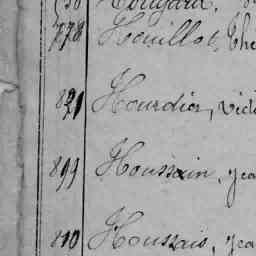 778 Houillot, The
821 Hourdier, Vict
899 Houssain, Jea
810 Houssais, Jea